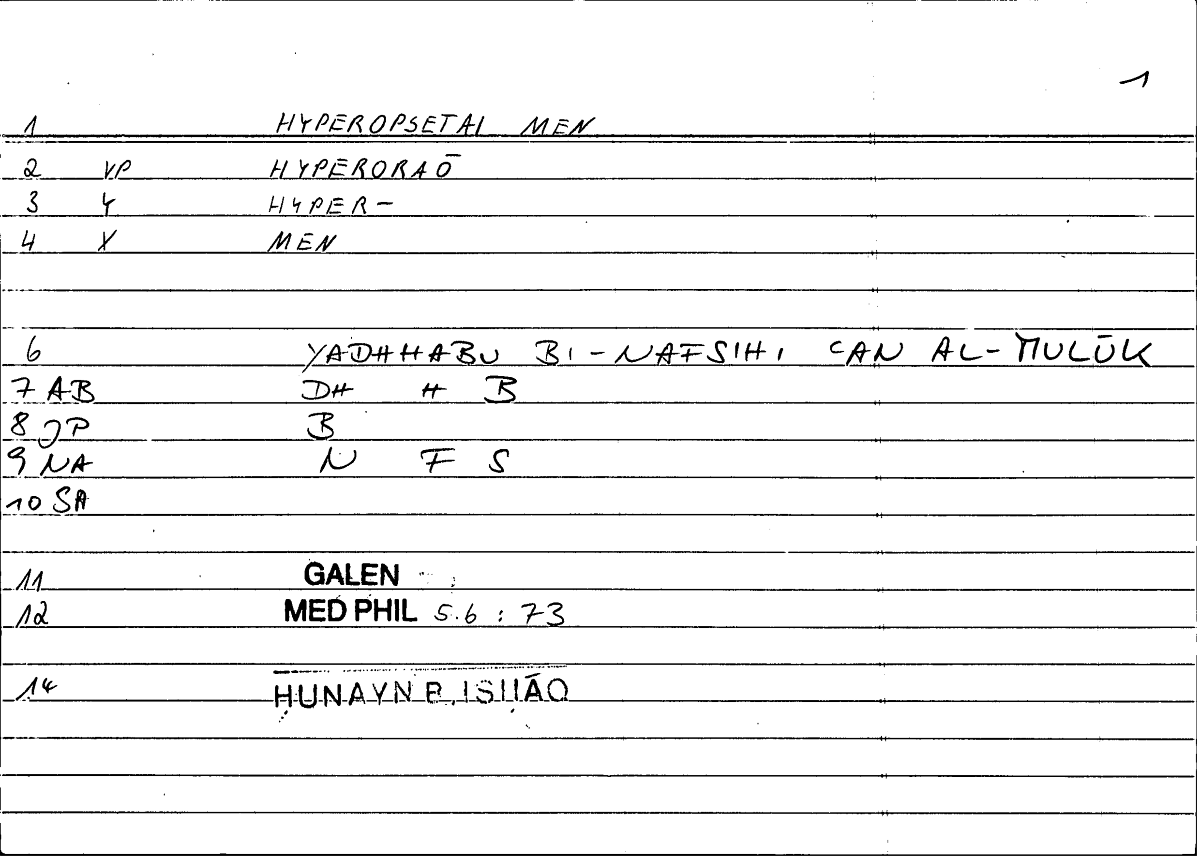 1
1 HYPEROPSETAI MEN
2 VP HYPERORAŌ
3 Y HYPER-
4 X MEN
6 YADHHABU BI-NAFSIHI CAN AL-MULŪK
7 AB DH H B
8 JP B
9 NA N F S
10 SA
11 GALEN
12 MED PHIL 5.6 : 73
14 ḤUNAYN B. ISḤĀQ